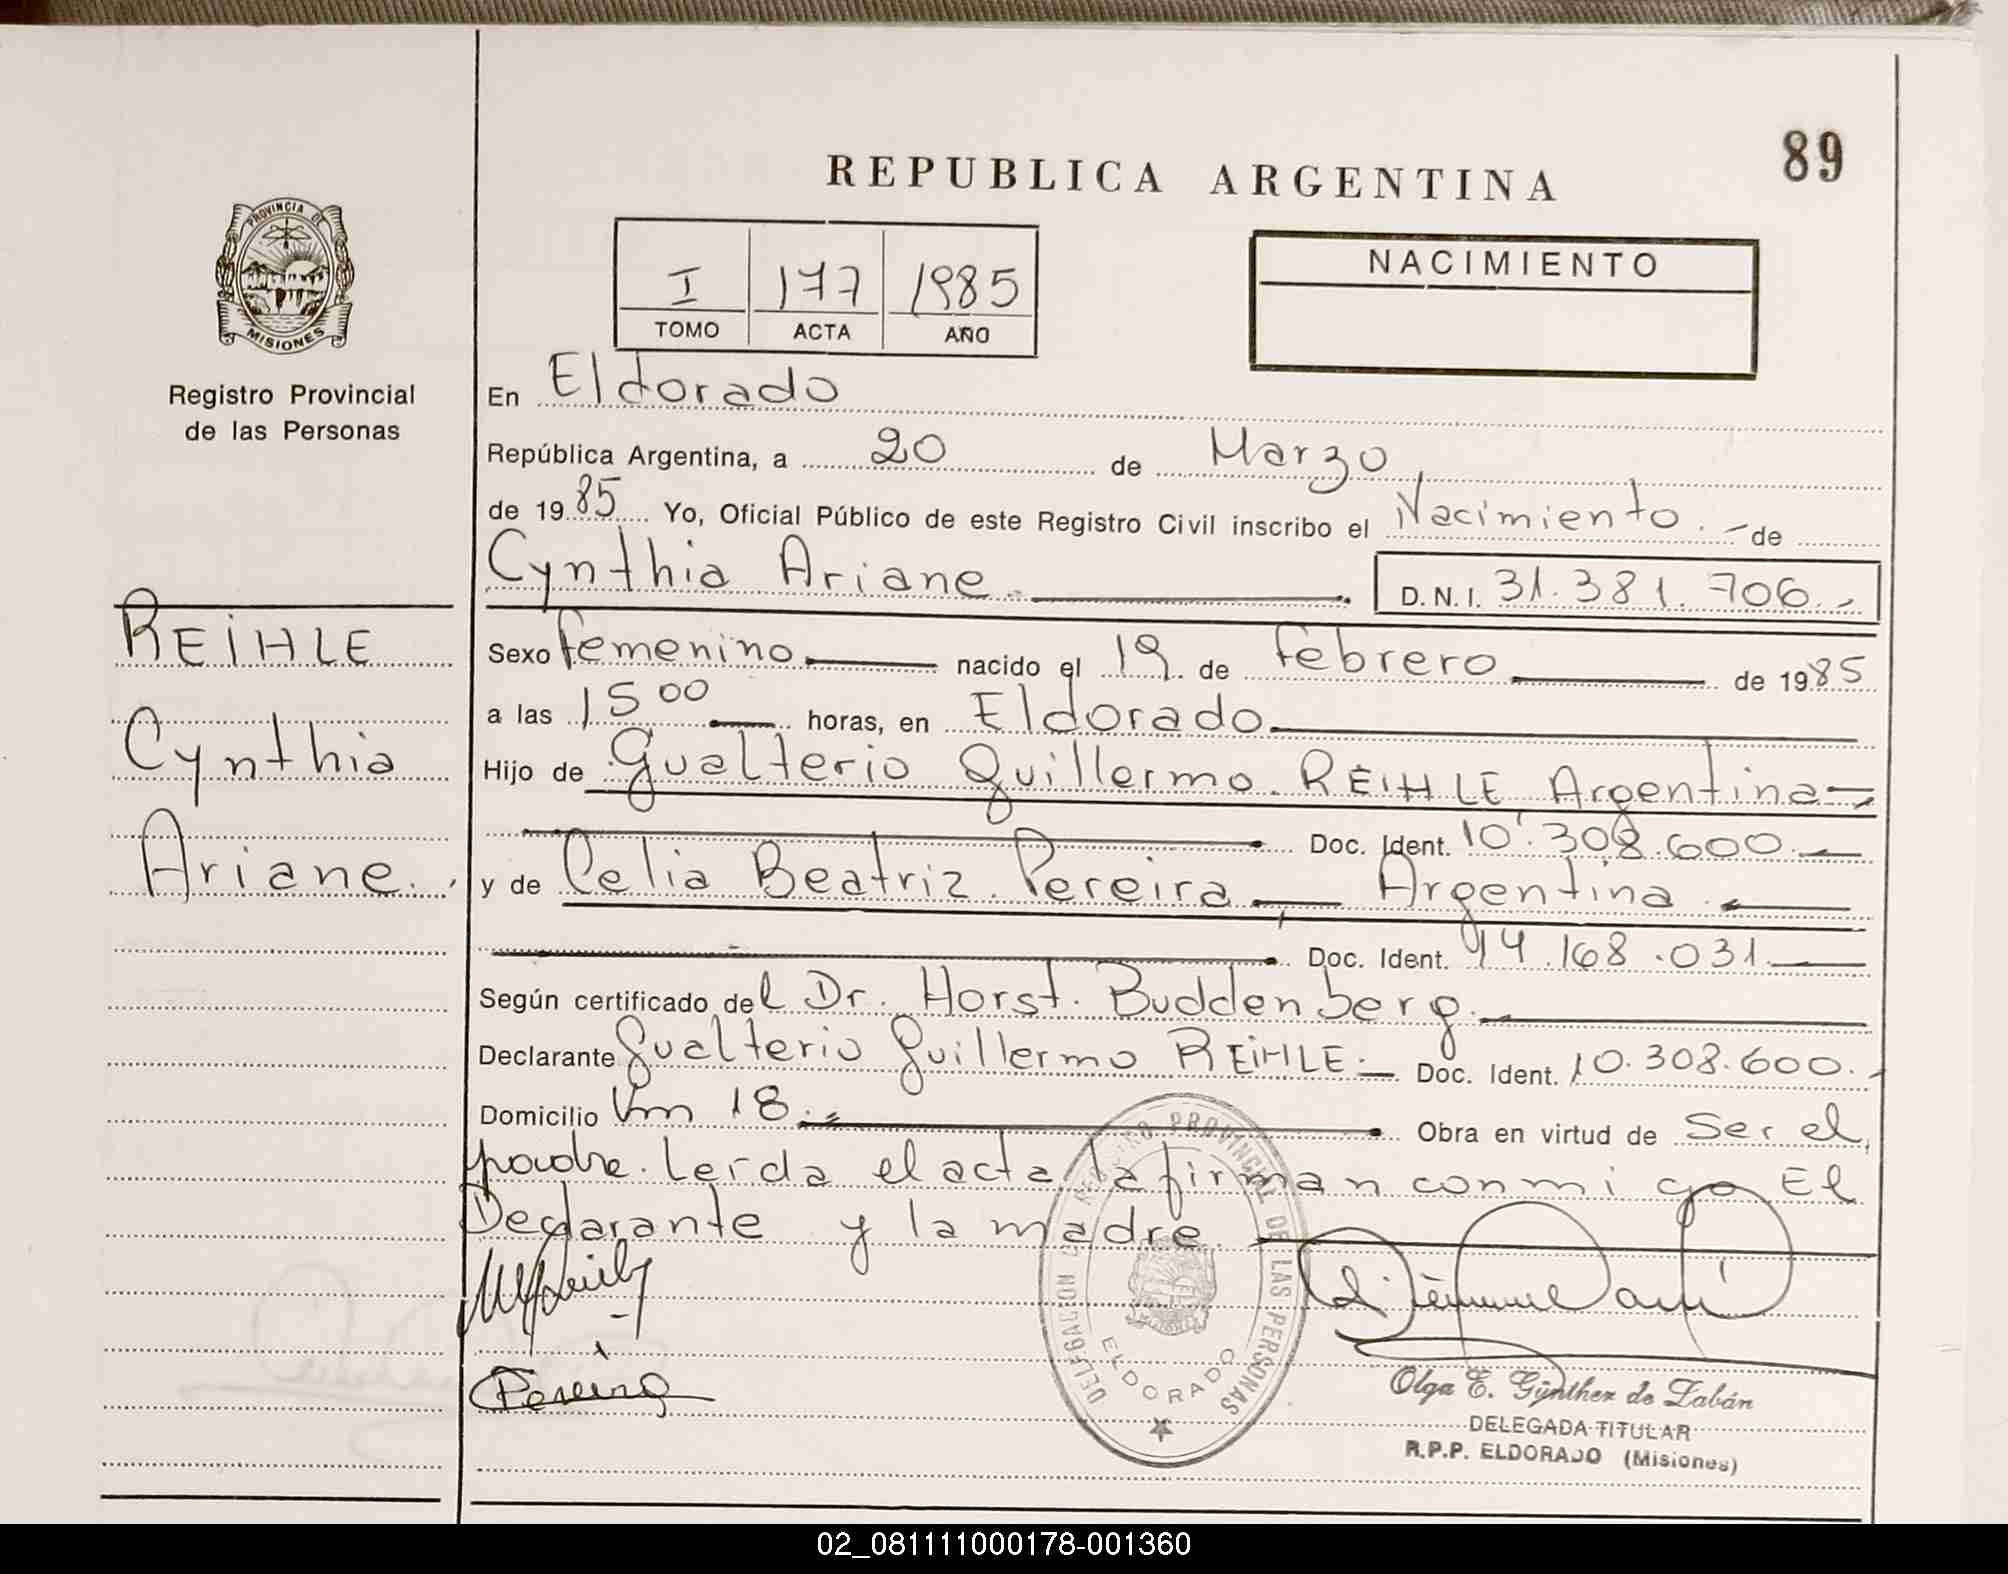 89
REPUBLICA ARGENTINA
PROVINCIA DE
MISIONES
I 177 1985
TOMO ACTA AÑO
NACIMIENTO
Registro Provincial
de las Personas
En Eldorado
República Argentina, a 20 de Marzo
de 1985 Yo, Oficial Público de este Registro Civil inscribo el Nacimiento.- de
Cynthia Ariane. D.N.I. 31.381.706.-
REIHLE
Cynthia
Ariane.
Sexo femenino nacido el 19 de febrero de 1985
a las 15 00 horas, en Eldorado
Hijo de Gualterio Guillermo. REIHLE Argentina
Doc. Ident. 10.308.600.
y de Celia Beatriz Pereira Argentina.
Doc. Ident. 14.168.031
Según certificado del Dr. Horst. Buddenberg.
Declarante Gualterio Guillermo REIHLE.- Doc. Ident. 10.308.600.-
Domicilio Km 18. Obra en virtud de Ser el
padre. Leida el acta la firman conmigo El
Declarante y la madre
REGISTRO PROVINCIAL DE LAS PERSONAS
DELEGACION
ELDORADO
Pereira
Olga E. Günther de Zabán
DELEGADA TITULAR
R.P.P. ELDORADO (Misiones)
02_081111000178-001360